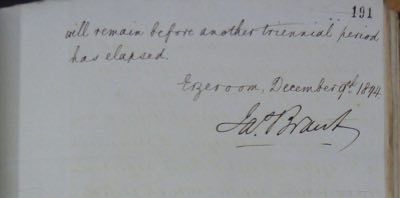 191
will remain before another triennial period
has elapsed.
Erzeroom, December 9th. 1844.
Jas. Brant